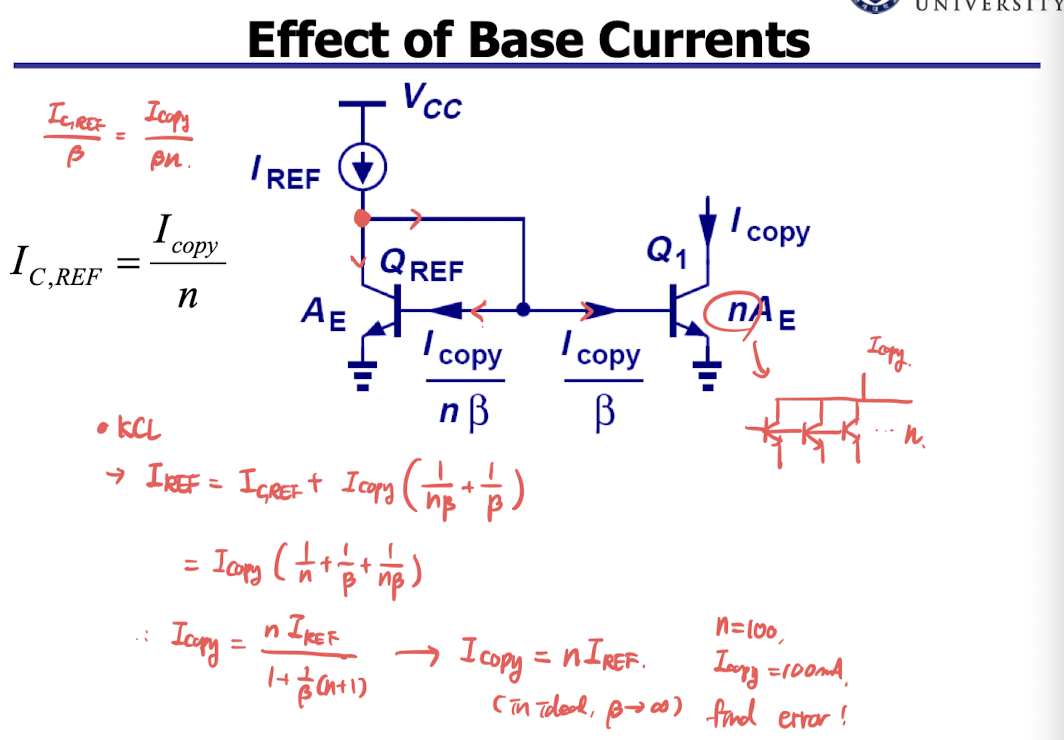 UNIVERSITY
Effect of Base Currents
I_C,REF / β = I_copy / βn.
I_C,REF = I_copy / n
V_CC
I_REF
Q_REF
A_E
I_copy / nβ
I_copy / β
Q_1
I_copy
nA_E
Icopy.
... n.
• KCL
→ I_REF = I_C,REF + Icopy ( 1/nβ + 1/β )
= Icopy ( 1/n + 1/β + 1/nβ )
∴ Icopy = n I_REF / 1 + 1/β (n+1) → Icopy = n I_REF.
(in ideal, β → ∞)
n=100,
Icopy = 100mA,
find error!